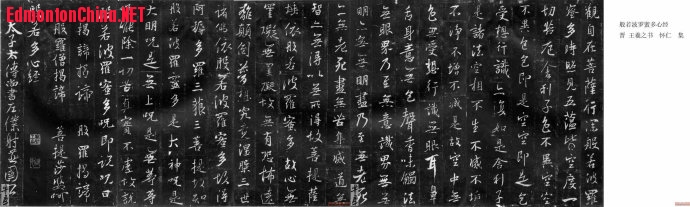 EdmontonChina.NET
般若波罗蜜多心经
晋 王羲之书 怀仁 集
觀自在菩薩行深般若波羅
蜜多時照見五蘊皆空度一
切苦厄舍利子色不異空空
不異色色即是空空即是色
受想行識亦復如是舍利子
是諸法空相不生不滅不垢
不淨不增不減是故空中無
色無受想行識無眼耳鼻
舌身意無色聲香味觸法
無眼界乃至無意識界無無
明亦無無明盡乃至無老死
亦無老死盡無苦集滅道無
智亦無得以無所得故菩提薩
埵依般若波羅蜜多故心無
罣礙無罣礙故無有恐怖遠離
顛倒夢想究竟涅槃三世
諸佛依般若波羅蜜多故得
阿耨多羅三藐三菩提故知
般若波羅蜜多是大神咒是
大明咒是無上咒是無等等
咒能除一切苦真實不虛故說
般若波羅蜜多咒即說咒曰
揭諦揭諦 般羅揭諦
般羅僧揭諦 菩提莎婆呵
般若多心經
太子太傅尚書左僕射燕國公